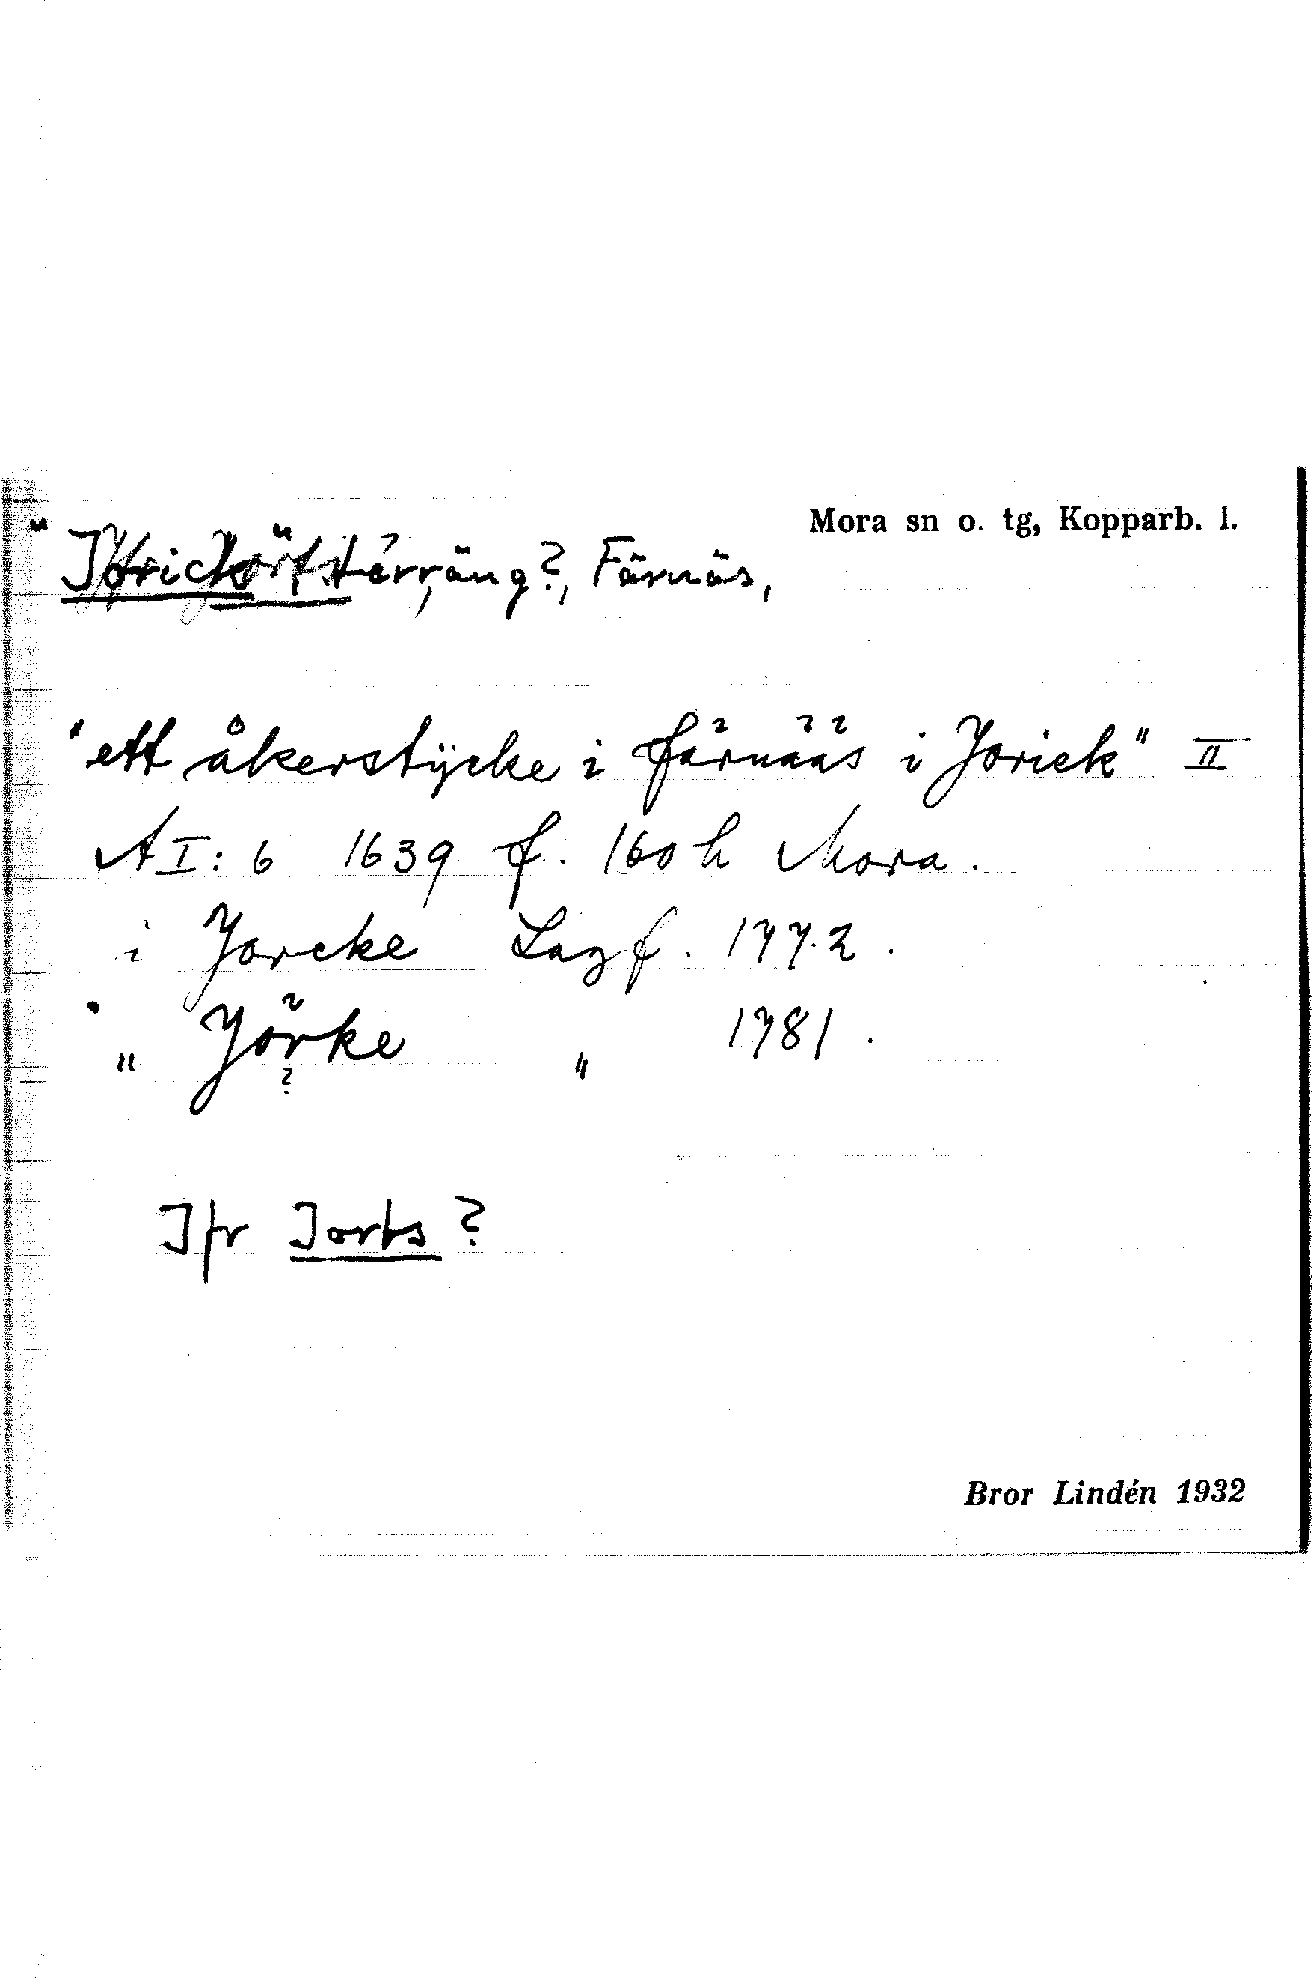 Mora sn o. tg, Kopparb. l.
terräng?, Färnäs,
"ett åkerstycke i färnääs i Jorick" II
A I: 6 1639 f. 160 h Mora.
i Jorcke Lazf. 1772.
" Jörke " 1781.
?
Jfr Jorbs?
Bror Lindén 1932